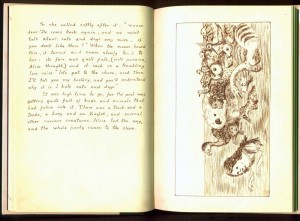 So she called softly after it: "mouse
dear! Do come back again, and we won't
talk about cats and dogs any more, if
you don't like them!" When the mouse heard
this, it turned and swam slowly back to
her: its face was quite pale, (with passion,
Alice thought,) and it said in a trembling
low voice "let's get to the shore, and then
I'll tell you my history, and you'll understand
why it is I hate cats and dogs."
It was high time to go, for the pool was
getting quite full of birds and animals that
had fallen into it. There was a Duck and a
Dodo, a Lory and an Eaglet, and several
other curious creatures. Alice led the way,
and the whole party swam to the shore.